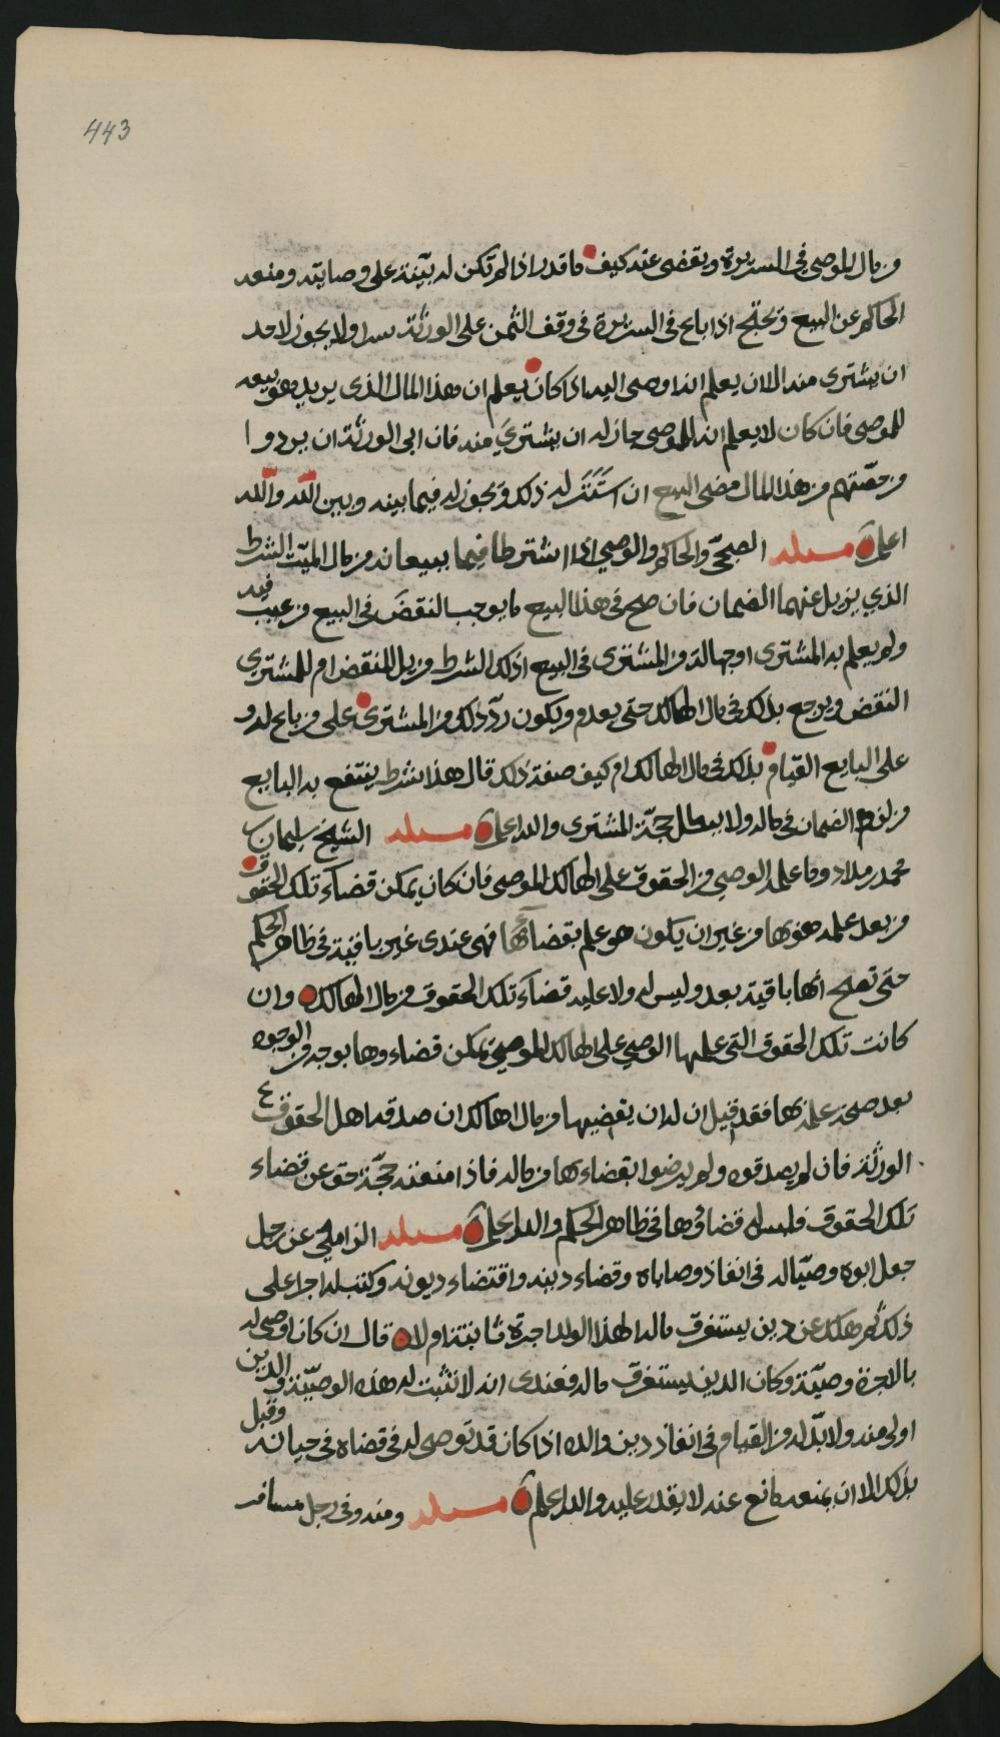 443
من مال الموصي في السريرة ويقضي عنه كيف ما قدر اذا لم تكن له بيّنة على وصايته ومنعه
الحاكم عن البيع ويحتج اذا باع في السريرة في وقف الثمن على الورثة سرا ولا يجوز لاحد
ان يشتري منه الا ان يعلم انه اوصى اليه اذا كان يعلم ان هذا المال الذي يريد هو بيعه
للموصي فان كان لا يعلم انه للموصي جاز له ان يشتري منه فان ابى الورثة ان يردوا
من حصّتهم من هذا المال مضى البيع ان استتر له ذلك ويجوز له فيما بينه وبين اللّه واللّه
اعلم مسئله الصبحيّ والحاكم والوصي اذا اشترطا فيما يبيعانه من مال الميّت الشرط
الذي يزيل عنهما الضمان فان صح في هذا البيع ما يوجب النقض في البيع من عيب فيه
ولم يعلم به المشتري او جهالة من المشتري في البيع اذلك الشرط مزيل للنقض ام للمشتري
النقض ويرجع بذلك في مال الهالك حتى يعدم ويكون ردّ ذلك من المشتري على من باع له و
على البايع القيام بذلك في مال الهالك ام كيف صفة ذلك قال هذا شرط ينتفع به البايع
من لزوم الضمان في ماله ولا يبطل حجّة المشتري والله اعلم مسئله الشيخ سليمان بن
محمد بن مداد وما علمه الوصي من الحقوق على الهالك الموصي فان كان يمكن قضاء تلك الحقوق
من بعد علمه هو بها من غير ان يكون هو علم بقضائها فهي عندي غير باقية في ظاهر الحكم
حتى تصح انها باقية بعد وليس له ولا عليه قضاء تلك الحقوق من مال الهالك وان
كانت تلك الحقوق التي علمها الوصي على الهالك الموصي يمكن قضاءوها بوجه من الوجوه
بعد صحة علمه بها فقد قيل ان له ان يقضيها من مال الهالك ان صدقه اهل الحقوق
الورثة فان لم يصدقوه ولم يرضوا بقضاءها من ماله فاذا منعته حجّة حق عن قضاء
تلك الحقوق فليس له قضاؤها في ظاهر الحكم والله اعلم مسئله الزاملي عن رجل
جعل ابوه وصيّا له في انفاذ وصاياه وقضاء دينه واقتضاء ديونه وكتب له اجرا على
ذلك ثم هلك عن دين يستغرق ماله الهذا الولد اجرة ثابتة ام لا قال ان كان اوصى له
بالاجرة وصيّة وكان الدين يستغرق ماله فعندي انه لا تثبت له هذه الوصيّة والدين
اولى منه ولا بدّ له من القيام في انفاذ دين والده اذا كان قد توصى له في قضاه في حياته وقبل
بذلك الا ان يمنعه مانع عنه لا يقدر عليه والله اعلم مسئله ومنه وفي رجل مسافر